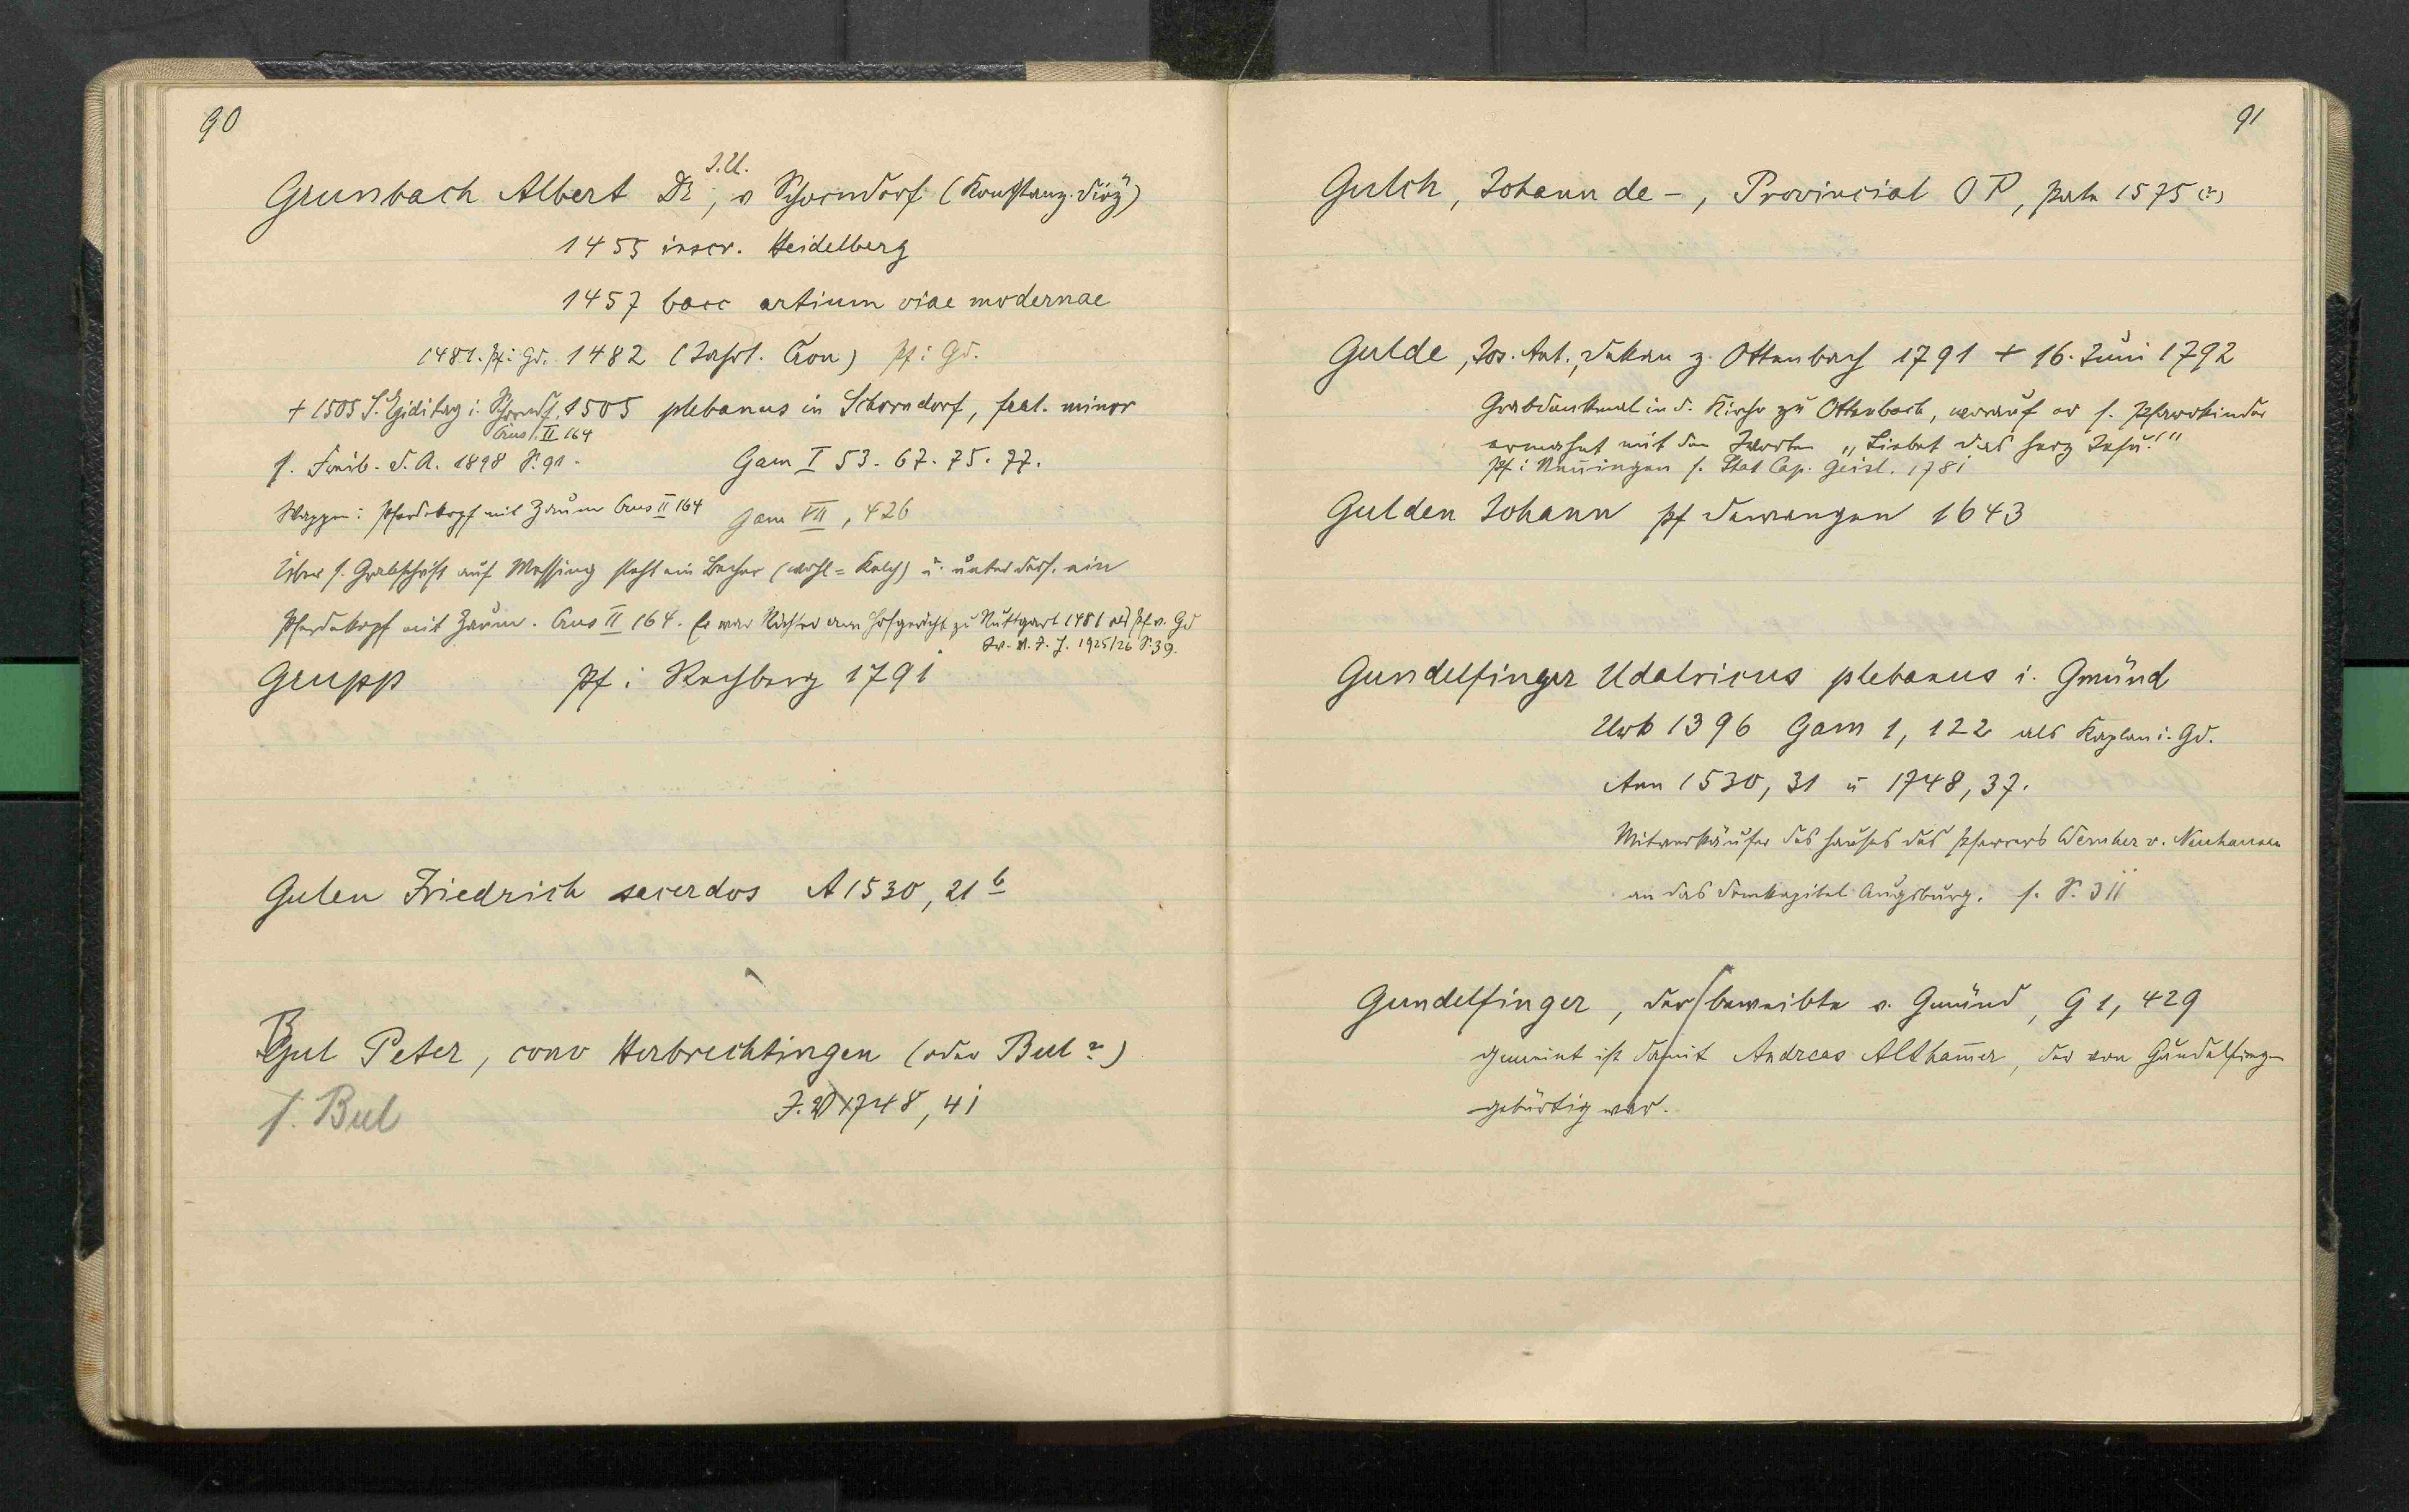 90
Grunbach Albert Dr J.U., v Schorndorf (Konstanz. Diöz)
1455 inscr. Heidelberg
1457 bacc artium viae modernae
1481. Pf. i Gd. 1482 (Jahrt. Aon) Pf i Gd.
+ 1505 S. Egiditag i. Schorndf. 1505 plebanus in Schorndorf, frat. minor
Crus. II 164
s. Freib. D. A. 1898 S. 91. Gam I 53. 67. 75. 77.
Wappen: Pferdekopf mit Zaum Crus II 164 Gam VII, 426
Über s. Grabschrift auf Messing steht ein Becher (wohl = Kelch) u. unter ders. ein
Pferdekopf mit Zaum. Crus II 164. Er war Richter am Hofgericht zu Stuttgart 1481 als Pf v. Gd
1925/26 S. 39.
Grupp Pf i Rechberg 1791
Gulen Friedrich sacerdos A 1530, 21 b
Gul Peter, conv Herbrechtingen (oder Bul?)
J. 1748, 41
s. Bul
91
Gulch, Johann de -, Provincial OP, 1575 (?)
Gulde, Jos. Ant., Dekan z. Ottenbach 1791 + 16. Juni 1792
Grabdenkmal in d. Kirche zu Ottenbach, worauf er s. Pfarrkinder
ermahnt mit den Worten „Liebet das Herz Jesu!"
Pf i Nenningen s. Stat Cap. Geisl. 1781
Gulden Johann Pf Dewangen 1643
Gundelfinger Udalricus plebanus i. Gmünd
Urk 1396 Gam 1, 122 als Kaplan i. Gd.
Ann 1530, 31 u 1748, 37.
Mitverkäufer des Hauses des Pfarrers Wernher v. Neuhausen
an das Domkapitel Augsburg. s. S. 311
Gundelfinger, der beweibte v. Gmünd, G 1, 429
gemeint ist damit Andreas Althamer, der von Gundelfingen
gebürtig war.